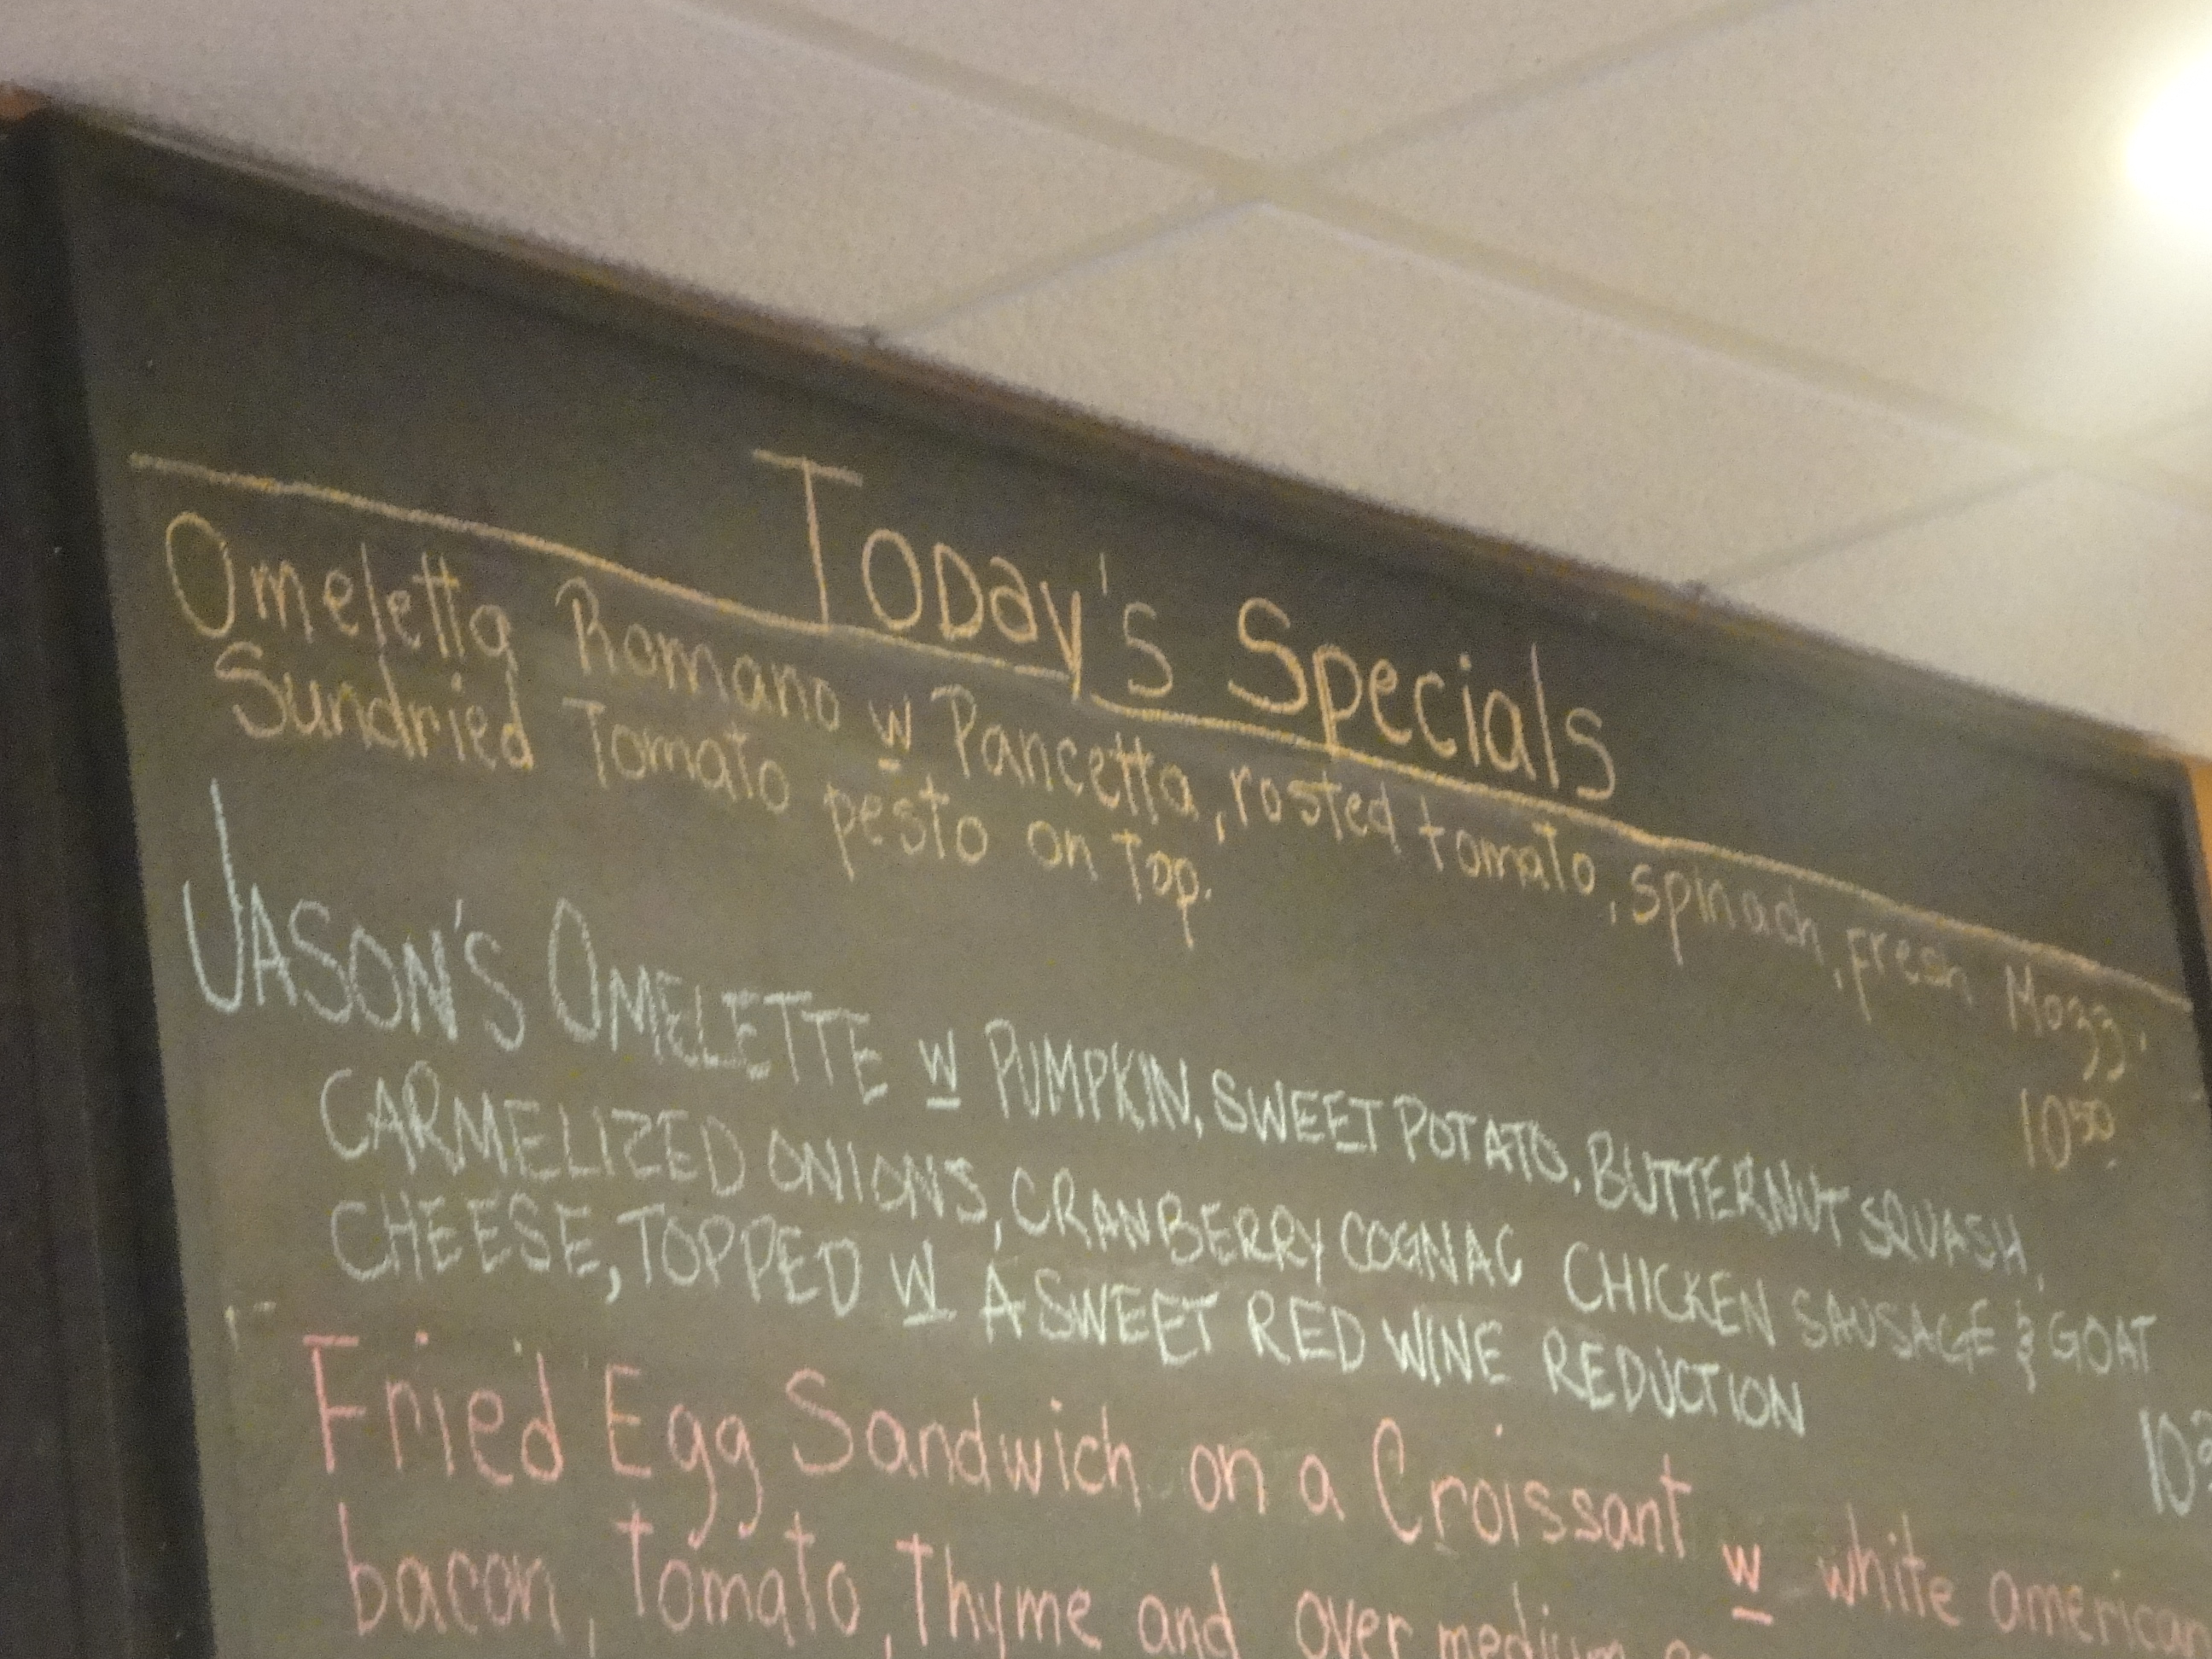 Today's Specials
Omeletta Romano w Pancetta, rosted tomato, spinach, fresh Mozz.
Sundried Tomato pesto on Top.
10⁵⁰
JASON'S OMELETTE w PUMPKIN, SWEET POTATO, BUTTERNUT SQUASH,
CARMELIZED ONIONS, CRANBERRY COGNAC CHICKEN SAUSAGE & GOAT
CHEESE, TOPPED W A SWEET RED WINE REDUCTION
10
Fried Egg Sandwich on a Croissant w white american
bacon, Tomato, Thyme and over medium